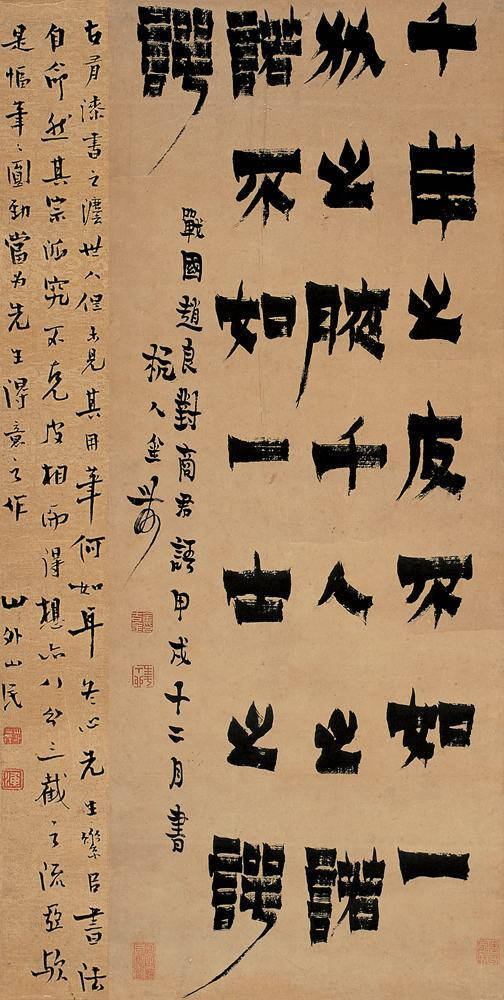 千羊之皮不如一
狐之腋千人之諾
諾不如一士之諤
諤
戰國趙良對商君語甲戌十二月書
杭人金農
古有漆書之灋世人俱未見其用筆何如耳冬心先生以書法
自命然其宗派究不克皮相而得想亦八分三截之流亞歟
是幅筆筆圓勁當为先生得意之作 山外山民